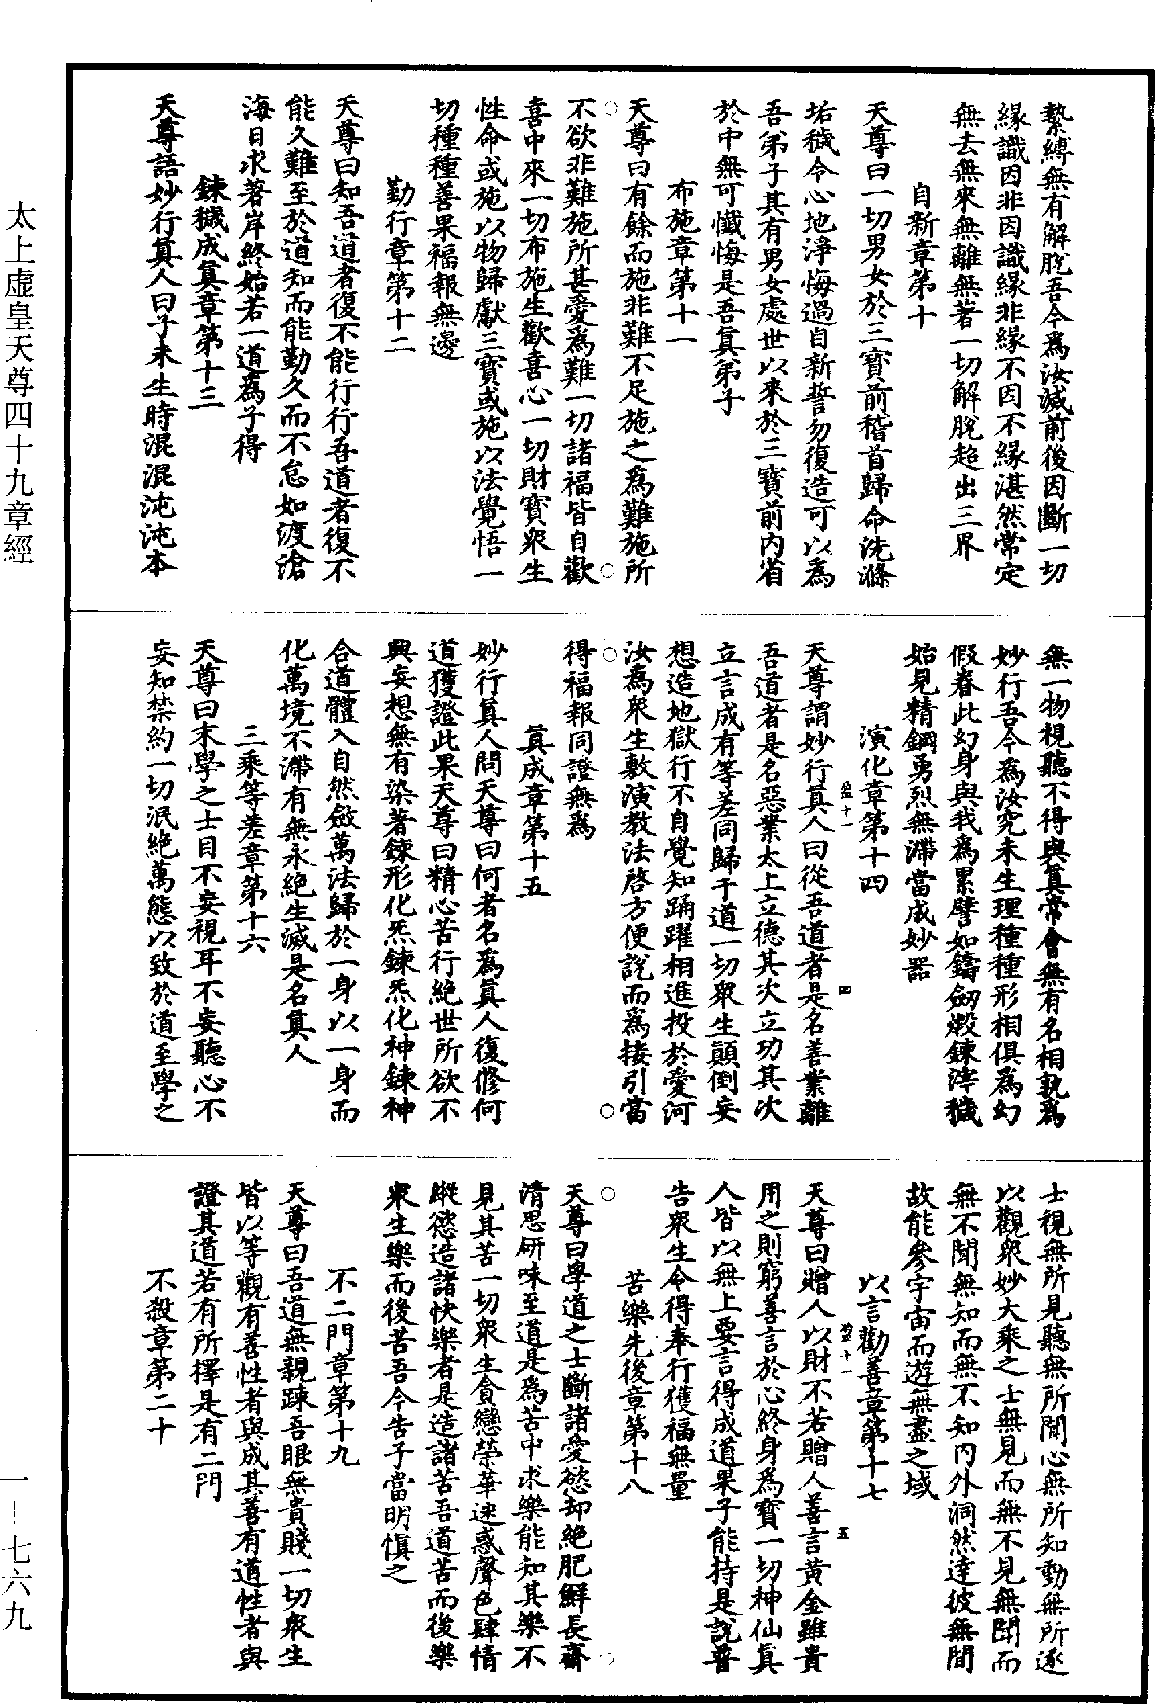 縶縛無有解脫吾今爲汝滅前後因斷一切
緣識因非因識緣非緣不因不緣湛然常定
無去無來無離無著一切解脫超出三界
自新章第十
天尊曰一切男女於三寶前稽首歸命洗滌
垢穢令心地淨悔過自新誓勿復造可以爲
吾弟子其有男女處世以來於三寶前內省
於中無可懺悔是吾眞弟子
布施章第十一
天尊曰有餘而施非難不足施之爲難施所
不欲非難施所甚愛爲難一切諸福皆自歡
喜中來一切布施生歡喜心一切財寶衆生
性命或施以物歸獻三寶或施以法覺悟一
切種種善果福報無邊
勤行章第十二
天尊曰知吾道者復不能行行吾道者復不
能久難至於道知而能勤久而不怠如渡滄
海日求著岸終始若一道爲子得
鍊穢成眞章第十三
天尊語妙行眞人曰子未生時混混沌沌本
無一物視聽不得與眞常會無有名相孰爲
妙行吾今爲汝究未生理種種形相俱爲幻
假眷此幻身與我爲累譬如鑄劒煅鍊滓穢
始見精鋼勇烈無滯當成妙器
演化章第十四
天尊謂妙行眞人曰從吾道者是名善業離
吾道者是名惡業太上立德其次立功其次
立言成有等差同歸于道一切衆生顚倒妄
想造地獄行不自覺知踊躍相進投於愛河
汝爲衆生敷演教法啓方便說而爲接引當
得福報同證無爲
眞成章第十五
妙行眞人問天尊曰何者名爲眞人復修何
道獲證此果天尊曰精心苦行絕世所欲不
興妄想無有染著鍊形化炁鍊炁化神鍊神
合道體入自然斂萬法歸於一身以一身而
化萬境不滯有無永絕生滅是名眞人
三乘等差章第十六
天尊曰末學之士目不妄視耳不妄聽心不
妄知禁約一切泯絕萬態以致於道至學之
士視無所見聽無所聞心無所知動無所逐
以觀衆妙大乘之士無見而無不見無聞而
無不聞無知而無不知內外洞然達彼無間
故能參宇宙而遊無盡之域
以言勸善章第十七
天尊曰贈人以財不若贈人善言黃金雖貴
用之則窮善言於心終身爲寶一切神仙眞
人皆以無上要言得成道果子能持是說普
告衆生令得奉行獲福無量
苦樂先後章第十八
天尊曰學道之士斷諸愛慾却絕肥鮮長齋
清思研味至道是爲苦中求樂能知其樂不
見其苦一切衆生貪戀榮華迷惑聲色肆情
蹤慾造諸快樂者是造諸苦吾道苦而後樂
衆生樂而後苦吾今告子當明愼之
不二門章第十九
天尊曰吾道無親踈吾眼無貴賤一切衆生
皆以等觀有善性者與成其善有道性者與
證其道若有所擇是有二門
不殺章第二十
太上虛皇天尊四十九章經
一—七六九